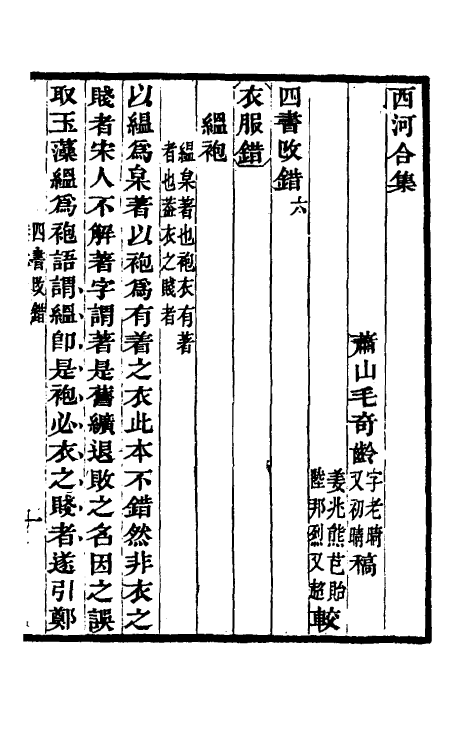 西河合集
蕭山毛奇齡字老晴又初晴稿
姜兆熊芑貽
陸邦烈又超較
四書改錯六
衣服錯
縕袍
縕枲著也袍衣有著
者也葢衣之賤者
以縕爲枲著以袍爲有着之衣此本不錯然非衣之
賤者宋人不解著字謂著是舊纊退敗之名因之誤
取玉藻縕爲袍語謂縕卽是袍必衣之賤者遂引鄭
四書改錯